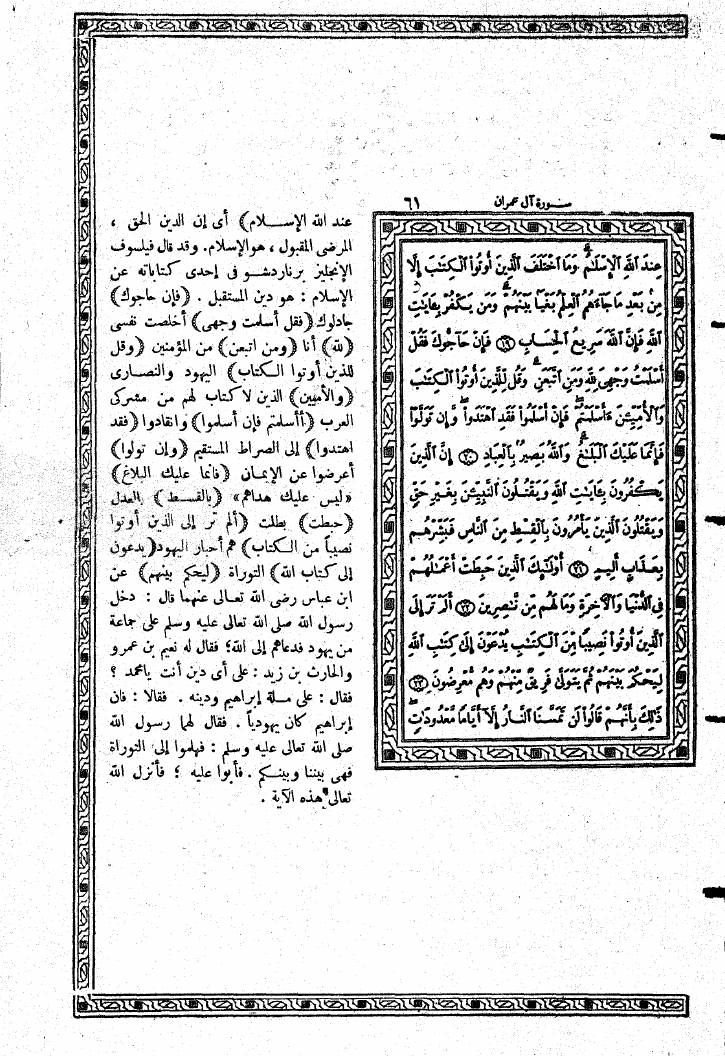 سورة آل عمران
٦١
عِندَ ٱللَّهِ ٱلْإِسْلَٰمُ وَمَا ٱخْتَلَفَ ٱلَّذِينَ أُوتُوا۟ ٱلْكِتَٰبَ إِلَّا
مِنۢ بَعْدِ مَا جَآءَهُمُ ٱلْعِلْمُ بَغْيًۢا بَيْنَهُمْ وَمَن يَكْفُرْ بِـَٔايَٰتِ
ٱللَّهِ فَإِنَّ ٱللَّهَ سَرِيعُ ٱلْحِسَابِ ﴿١٩﴾ فَإِنْ حَآجُّوكَ فَقُلْ
أَسْلَمْتُ وَجْهِىَ لِلَّهِ وَمَنِ ٱتَّبَعَنِ وَقُل لِّلَّذِينَ أُوتُوا۟ ٱلْكِتَٰبَ
وَٱلْأُمِّيِّـۧنَ ءَأَسْلَمْتُمْ فَإِنْ أَسْلَمُوا۟ فَقَدِ ٱهْتَدَوا۟ وَّإِن تَوَلَّوْا۟
فَإِنَّمَا عَلَيْكَ ٱلْبَلَٰغُ وَٱللَّهُ بَصِيرٌۢ بِٱلْعِبَادِ ﴿٢٠﴾ إِنَّ ٱلَّذِينَ
يَكْفُرُونَ بِـَٔايَٰتِ ٱللَّهِ وَيَقْتُلُونَ ٱلنَّبِيِّـۧنَ بِغَيْرِ حَقٍّ
وَيَقْتُلُونَ ٱلَّذِينَ يَأْمُرُونَ بِٱلْقِسْطِ مِنَ ٱلنَّاسِ فَبَشِّرْهُم
بِعَذَابٍ أَلِيمٍ ﴿٢١﴾ أُو۟لَٰٓئِكَ ٱلَّذِينَ حَبِطَتْ أَعْمَٰلُهُمْ
فِى ٱلدُّنْيَا وَٱلْـَٔاخِرَةِ وَمَا لَهُم مِّن نَّٰصِرِينَ ﴿٢٢﴾ أَلَمْ تَرَ إِلَى
ٱلَّذِينَ أُوتُوا۟ نَصِيبًا مِّنَ ٱلْكِتَٰبِ يُدْعَوْنَ إِلَىٰ كِتَٰبِ ٱللَّهِ
لِيَحْكُمَ بَيْنَهُمْ ثُمَّ يَتَوَلَّىٰ فَرِيقٌ مِّنْهُمْ وَهُم مُّعْرِضُونَ ﴿٢٣﴾
ذَٰلِكَ بِأَنَّهُمْ قَالُوا۟ لَن تَمَسَّنَا ٱلنَّارُ إِلَّآ أَيَّامًا مَّعْدُودَٰتٍ
عند الله الإســلام) أى إن الدين الحق ،
المرضى المقبول ، هو الإسلام. وقد قال فيلسوف
الإنجليز برناردشو فى إحدى كتاباته عن
الإسلام : هو دين المستقبل . (فإن حاجوك)
جادلوك (فقل أسلمت وجهى) أخلصت نفسى
(لله) أنا (ومن اتبعن) من المؤمنين (وقل
للذين أوتوا الكتاب) اليهود والنصارى
(والأميين) الذين لا كتاب لهم من مشركى
العرب (أأسلمتم فإن أسلموا) وانقادوا (فقد
اهتدوا) إلى الصراط المستقيم (وإن تولوا)
أعرضوا عن الإيمان (فإنما عليك البلاغ)
«ليس عليك هداهم» (بالقسط) العدل
(حبطت) بطلت (ألم تر إلى الذين أوتوا
نصيباً من الكتاب) هم أحبار اليهود (يدعون
إلى كتاب الله) التوراة (ليحكم بينهم) عن
ابن عباس رضى الله تعالى عنهما قال : دخل
رسول الله صلى الله تعالى عليه وسلم على جماعة
من يهود فدعاهم إلى الله؛ فقال له نعيم بن عمرو
والحارث بن زيد : على أى دين أنت يا محمد ؟
فقال : على ملة إبراهيم ودينه . فقالا : فإن
إبراهيم كان يهودياً . فقال لهما رسول الله
صلى الله تعالى عليه وسلم : فهلموا إلى التوراة
فهى بيننا وبينكم . فأبوا عليه ؛ فأنزل الله
تعالى هذه الآية .